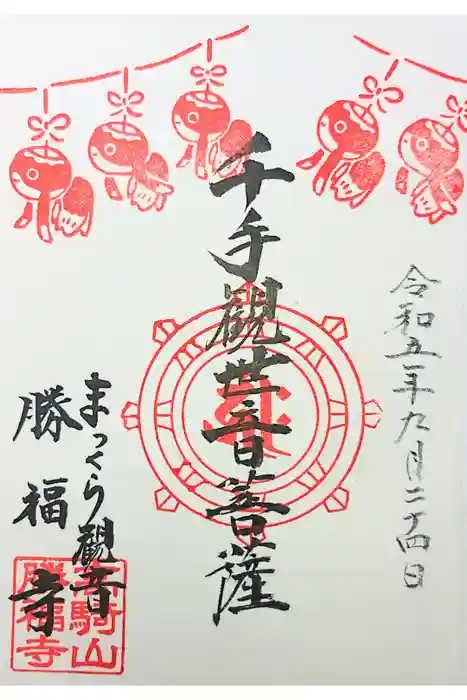 令和五年九月二十四日
千手觀世音菩薩
まっくら観音
勝福寺
騎山
勝福寺